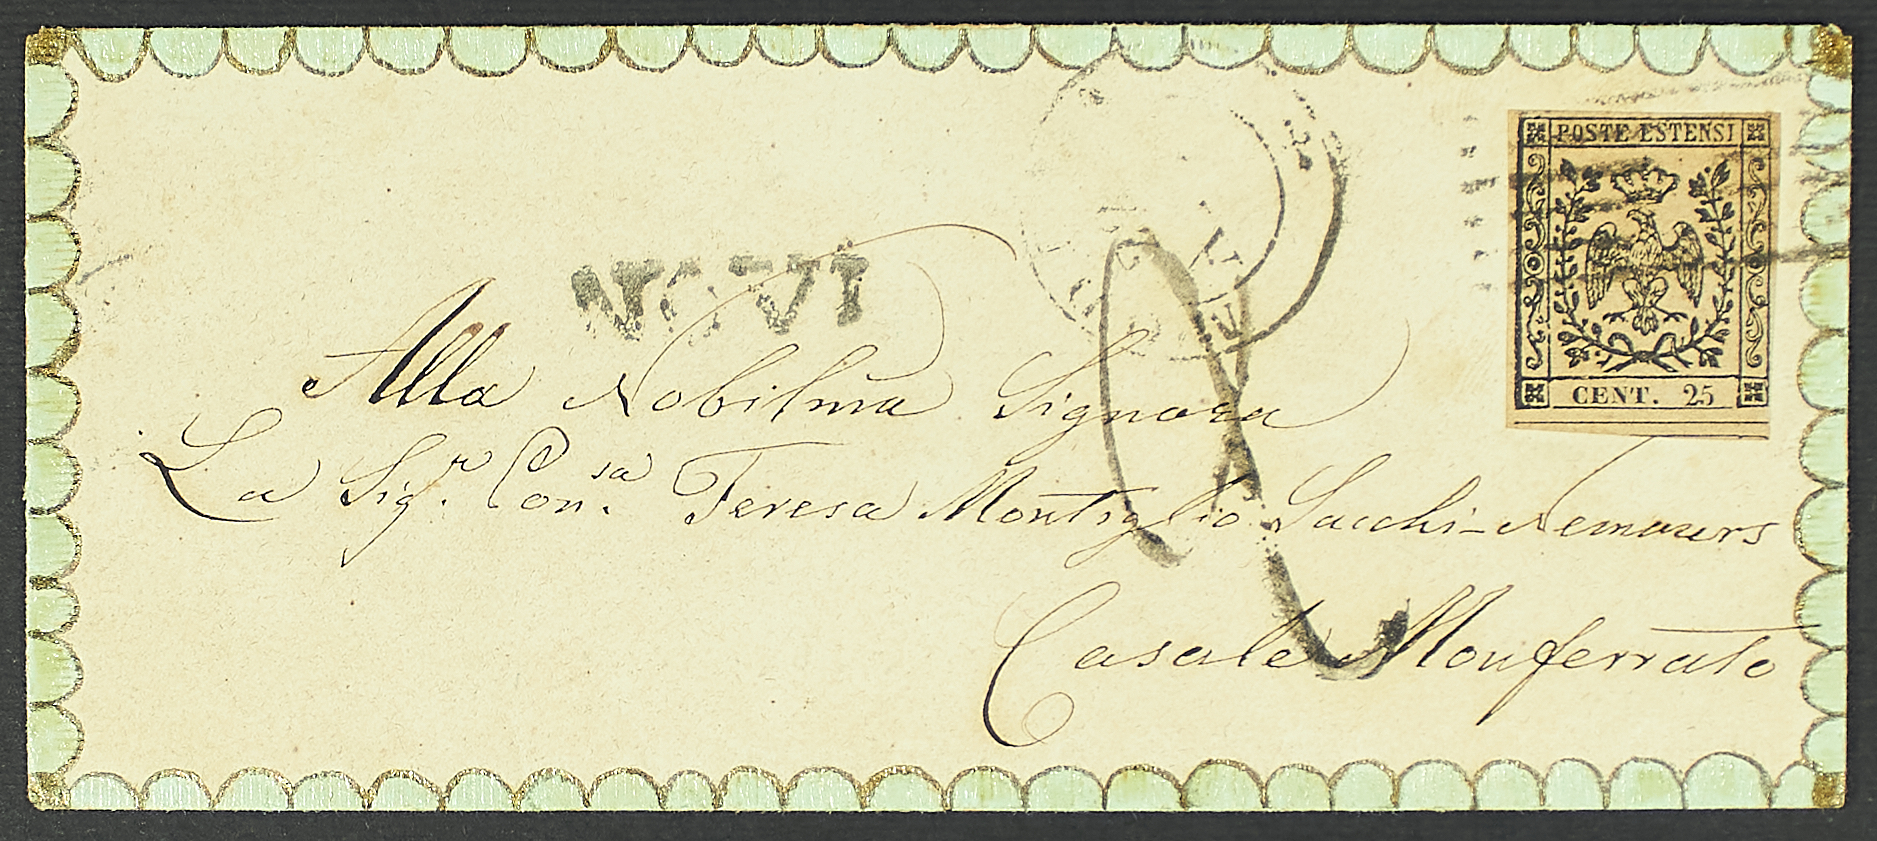 POSTE ESTENSI
CENT. 25
NOVI
Alla Nobilma Signora
La Sigr. Consa. Teresa Montiglio Sacchi-Nemours
Casale Monferrato